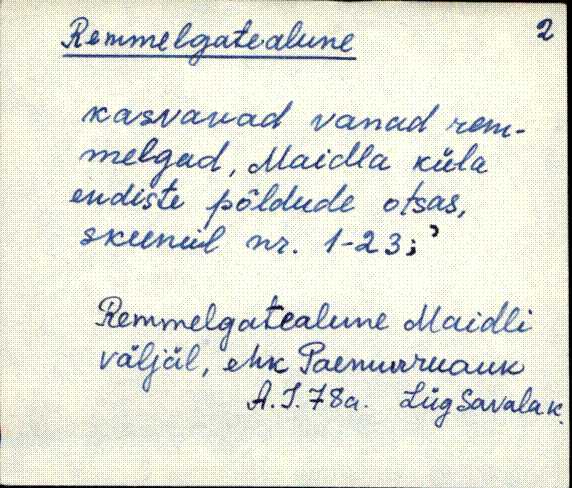 Remmelgatealune 2
kasvavad vanad rem-
melgad, Maidla küla
endiste põldude otsas,
skeemil nr. 1-23;
Remmelgatealune Maidli
väljäl, ehk Paemurruauk
A.J.78a. LügSavalak.